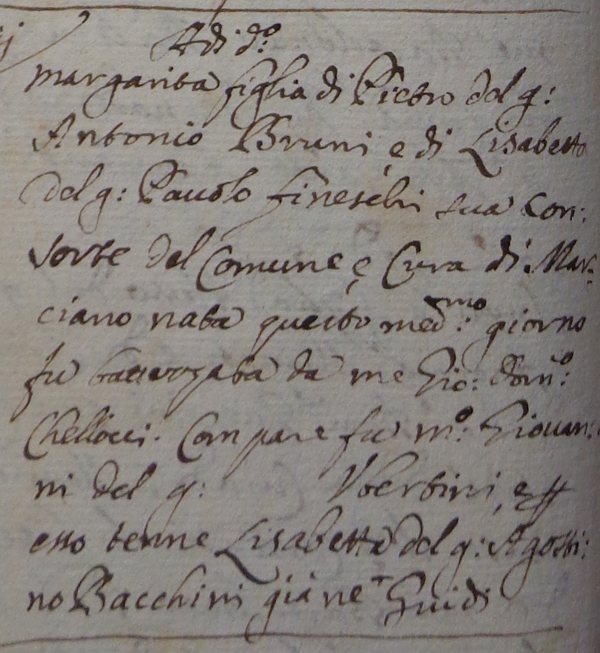 Adi d.º
Margarita figlia di Pietro del q:
Antonio Bruni, e di Lisabetta
del q: Pavolo Fineschi sua Con:
sorte del Comune, e Cura di Mar:
ciano nata questo med:mo giorno
fu battezzata da me Gio: Dom:º
Chellocci. Compare fu m:º Giovan:
ni del q: Ubertini, e p
esso tenne Lisabetta del q: Agosti:
no Bacchini già ne Guidi